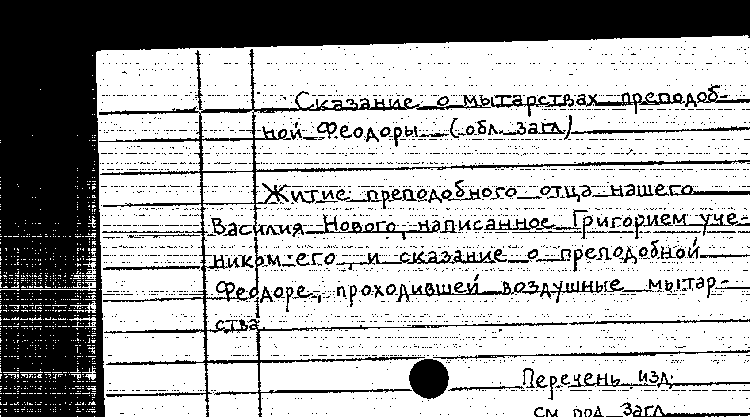 Сказание о мытарствах преподоб-
ной Феодоры (обл. загл)
Житие преподобного отца нашего
Василия Нового, написанное Григорием уче-
ником его, и сказание о преподобной
Феодоре, проходившей воздушные мытар-
ства
Перечень изд.
см под загл